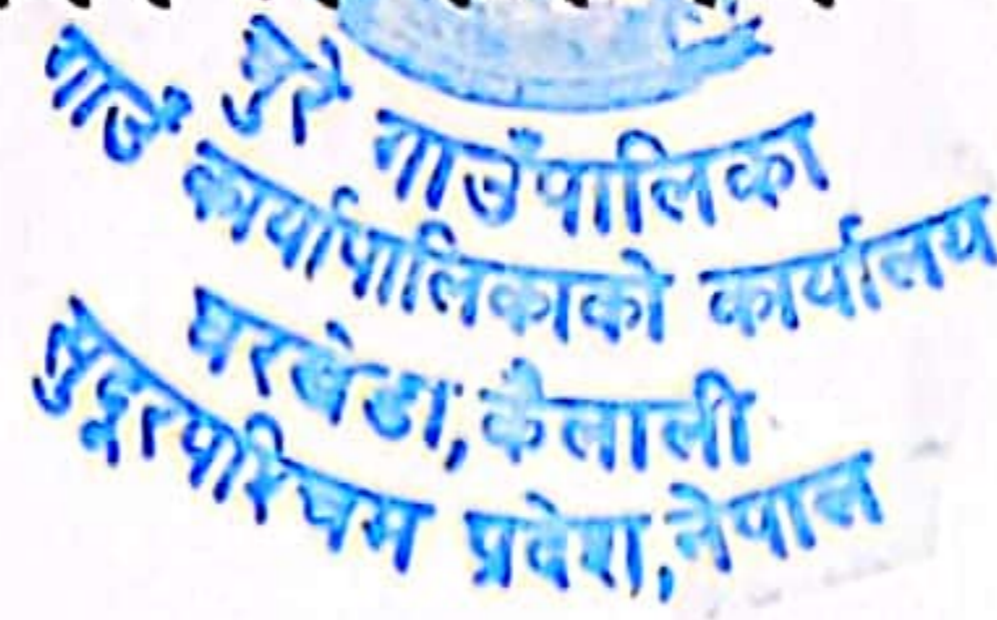 चुरे गाउँपालिका
गाउँ कार्यापालिकाको कार्यालय
घरखेडा, कैलाली
सुदूरपश्चिम प्रदेश, नेपाल